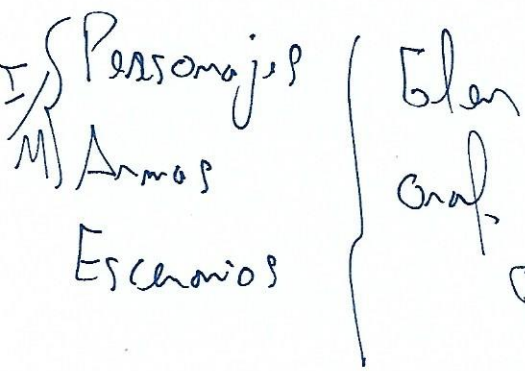 I/M Personajes
Armas
Escenarios
Elem
Graf.